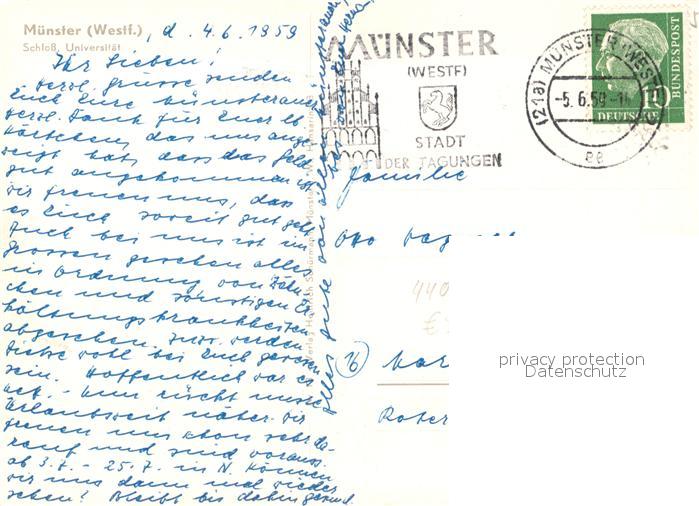 Münster (Westf.)
Schloß, Universität
, d. 4.6.1959
Ihr Lieben!
Herzl. Grüsse senden
Euch Eure Münsteraner
Herzl. Dank für Euer lb.
Kärtchen, das uns ange-
zeigt hat, dass das Geld
gut angekommen ist.
Wir freuen uns, dass
es Euch soweit gut geht.
Auch bei uns ist im
Grossen gesehen alles
in Ordnung von
und sonstigen Er-
kältungskrankheiten
abgesehen. werden
wohl bei Euch gewesen
sein. Hoffentlich war es
nett. - Nun rückt unsere
Urlaubszeit näher. Wir
freuen uns schon sehr da-
rauf und sind vorauss.
ab 3.7. - 25.7. in N. Können
wir uns dann mal wieder
sehen? Bleibt bis dahin gesund.
Alles Gute von allen
MÜNSTER
(WESTF)
STADT
DER TAGUNGEN
(21a) MÜNSTER (WESTF)
-5.6.59-14
ee
10
DEUTSCHE
BUNDESPOST
Familie
Otto
440
16
privacy protection
Datenschutz